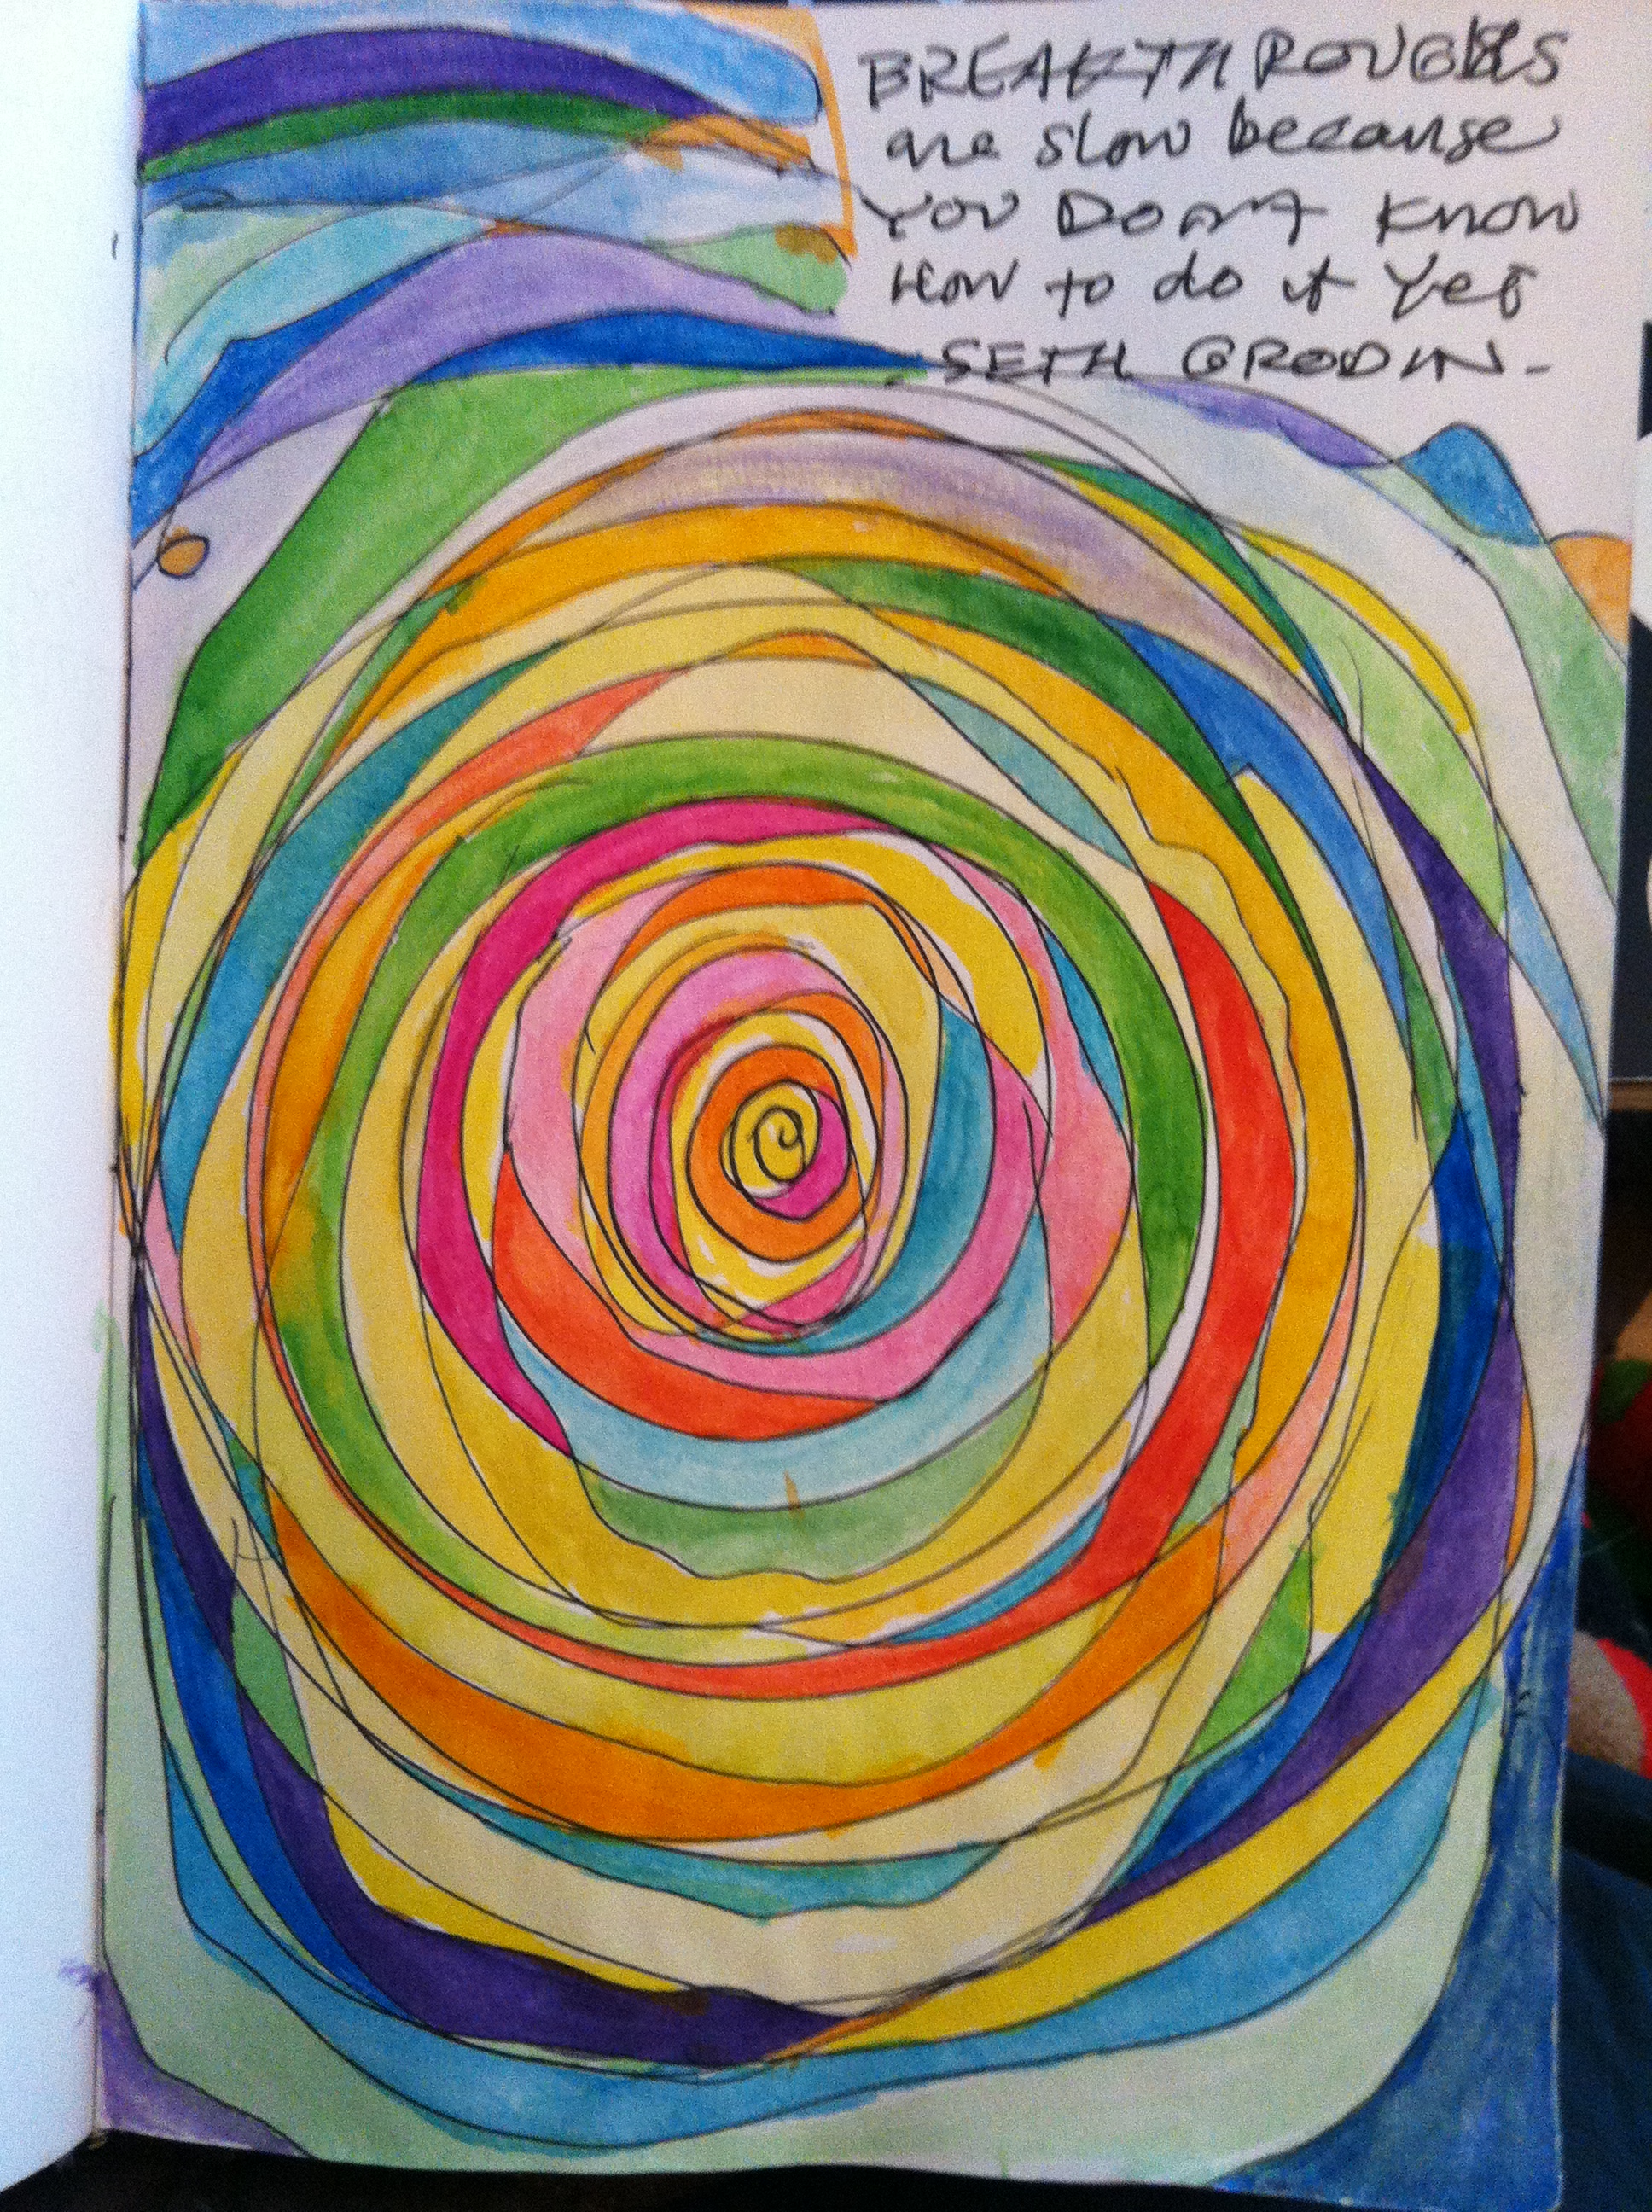 BREAKTHROUGHS
are slow because
YOU DON'T KNOW
HOW to do it Yet
SETH GRODIN-